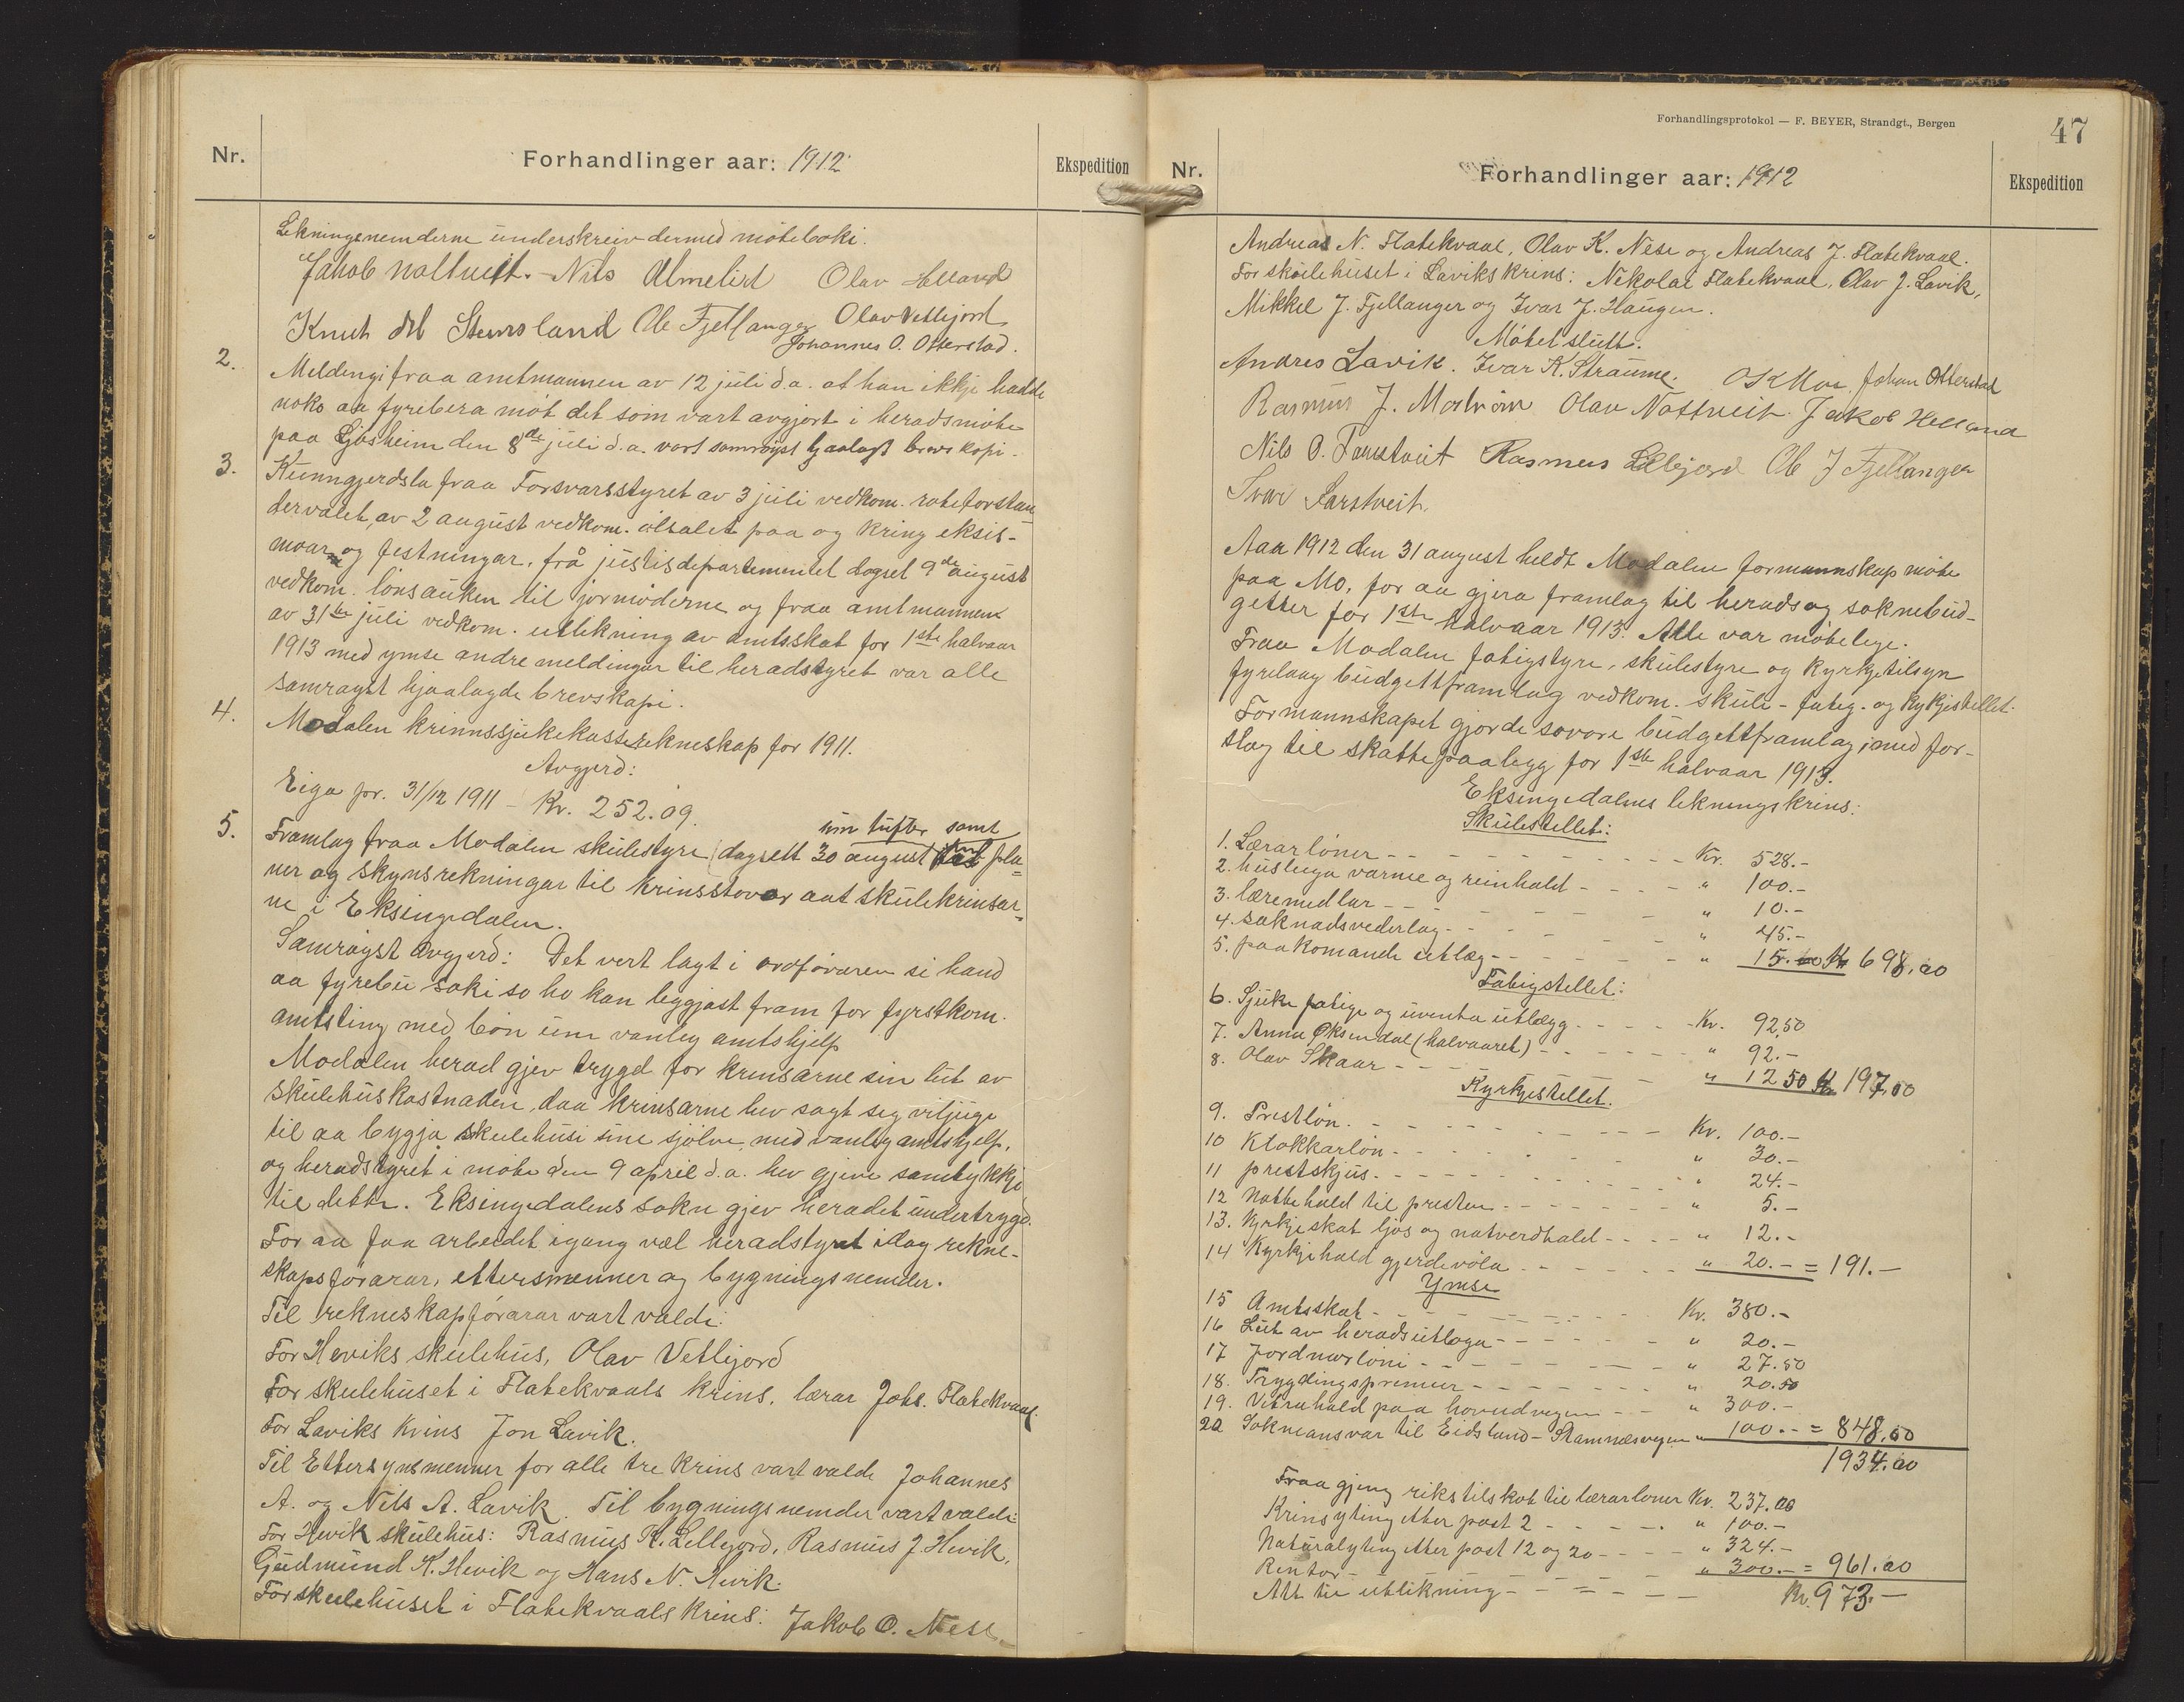 Nr.
Forhandlinger aar: 1912
Ekspedition
Likningsnemderne underskreiv dermed möteboki.
Jakob Nottveit. Nils Almelid Olav Helland
Knut Stensland Ole Fjellanger Olav Vetlejord
Johannes O. Otterstad.
2. Meldingi fraa amtmannen av 12 juli d.a. at han ikkje hadde
noko aa fyrebera mot det som vart avgjort i heradsmöte
paa Ljosheim den 8de juli d.a. vart samröyst hjaalagt brevskapi.
3. Kunngjerdsla fraa Forsvarsstyret av 3 juli vedkom. roteforstan
dervalet, av 2 august vedkom. ölsalet paa og kring eksis-
moar og festningar, frå justisdepartementet dagset 9de august
vedkom. lönsauken til jormöderne og fraa amtmannen
av 31te juli vedkom. utlikning av amtsskat for 1ste halvaar
1913 med ymse andre meldingar til heradstyret var alle
samröyst hjaalagde brevskapi.
4. Modalen krinssjukekasserekneskap for 1911.
Avgjerd:
Eiga pr. 31/12 1911 - Kr. 252.09.
um tufter samt
5. Framlag fraa Modalen skulestyre dagsett 30 august pla=
ner og skynsrekningar til krinsstovor aat skulekrinsar=
ne i Eksingedalen.
Samröyst avgjerd: Det vert lagt i ordföraren si hand
aa fyrebu saki so ho kan leggjast fram for fyrstkom.
amtsting med bön um vanleg amtshjelp
Modalen herad gjev trygd for krinsarne sin lut av
skulehuskostnaden, daa krinsarne hev sagt seg viljuge
til aa byggja skulehusi sine sjölve, med vanleg amtshjelp,
og heradstyret i möte den 9 april d.a. hev gjeve samtykkje
til dette. Eksingedalens sokn gjev heradet undertrygd.
For aa faa arbeidet igang vel heradstyret idag rekne-
skapsförarar, ettersmenner og bygningsnemder.
Til rekneskapförarar vart valde:
For Heviks skulehus, Olav Vetlejord
For skulehuset i Flatekvaals krins, lærar Johs. Flatekvaal.
For Laviks Krins Jon Lavik.
Til Ettersynsmenner for alle tre krins vart valde Johannes
A. og Nils A. Lavik. Til bygningsnemder vart valde:
For Hevik skulehus: Rasmus K. Lillejord, Rasmus J. Hevik,
Gudmund K. Hevik og Hans N. Hevik.
For skulehuset i Flatekvaals krins: Jakob O. Nese
Forhandlingsprotokol — F. BEYER, Strandgt., Bergen
47
Nr.
Forhandlinger aar: 1912
Ekspedition
Andreas N. Flatekvaal, Olav K. Nese og Andreas J. Flatekvaal.
For skulehuset i Laviks krins: Nikolai Flatekvaal, Olav J. Lavik,
Mikkel J. Fjellanger og Ivar J. Haugen.
Mötet slutt.
Andres Lavik. Ivar K. Straume. O K Moe Johan Otterstad
Rasmus J. Moström Olav Nottveit Jakob Helland
Nils O. Farestveit Rasmus Lillejord Ole J Fjellanger
Ivar Farestveit.
Aar 1912 den 31 august heldt Modalen formannskap möte
paa Mo, for aa gjera framlag til herads og soknebud-
getter for 1ste halvaar 1913. Alle var mötelege.
Fraa Modalen fatigstyre, skulestyre og kyrkjetilsyn
fyrelaag budgettframlag vedkom. skule- fatig- og kykjestellet.
Formannskapet gjorde sovore budgettframlag med for-
slag til skattepaalegg for 1ste halvaar 1913.
Eksingedalens likningskrins:
Skulestellet:
1. Lærarlöner - - - Kr. 528.-
2. husleiga varme og reinhald - - - " 100.-
3. læremedlar - - - " 10.-
4. saknadsvederlag - - - " 45.-
5. paakomande utlæg - - - " 15.00 Kr 698,00
Fatigstellet:
6. Sjuke fatige og uventa utlægg - - - Kr. 92,50
7. Anna Øksendal (halvaaret) - - - " 92.-
8. Olav Skaar - - - " 12 50 Kr 197,00
Kyrkjestellet.
9. Prestlön - - - Kr. 100.-
10 Klokkarlön - - - " 30.-
11 prestskjus - - - " 24.-
12 Nattehald til presten - - - " 5.-
13. Kyrkjeskat ljos og natverdhald - - - " 12.-
14 Kyrkjehald gjerdevöla - - - " 20.- = 191.-
Ymse
15 Amtsskat - - - Kr. 380.-
16 Lut av heradsutloga - - - " 20.-
17 Jordmorlöni - - - " 27.50
18. Trygdingspremier - - - " 20.50
19. Vetrahald paa hovudvegen - - - " 300.-
20 Sokneansvar til Eidsland-Stamnesvegen " 100.- = 848,00
1934.00
Fraa gjeng rikstilskot til lærarlöner Kr. 237.00
Krinsyting etter post 2 - - - " 100.-
Naturalyting etter post 12 og 20 - - - " 324.-
Rentor - - - " 300.- = 961.00
Att til utlikning - - - Kr. 973.-